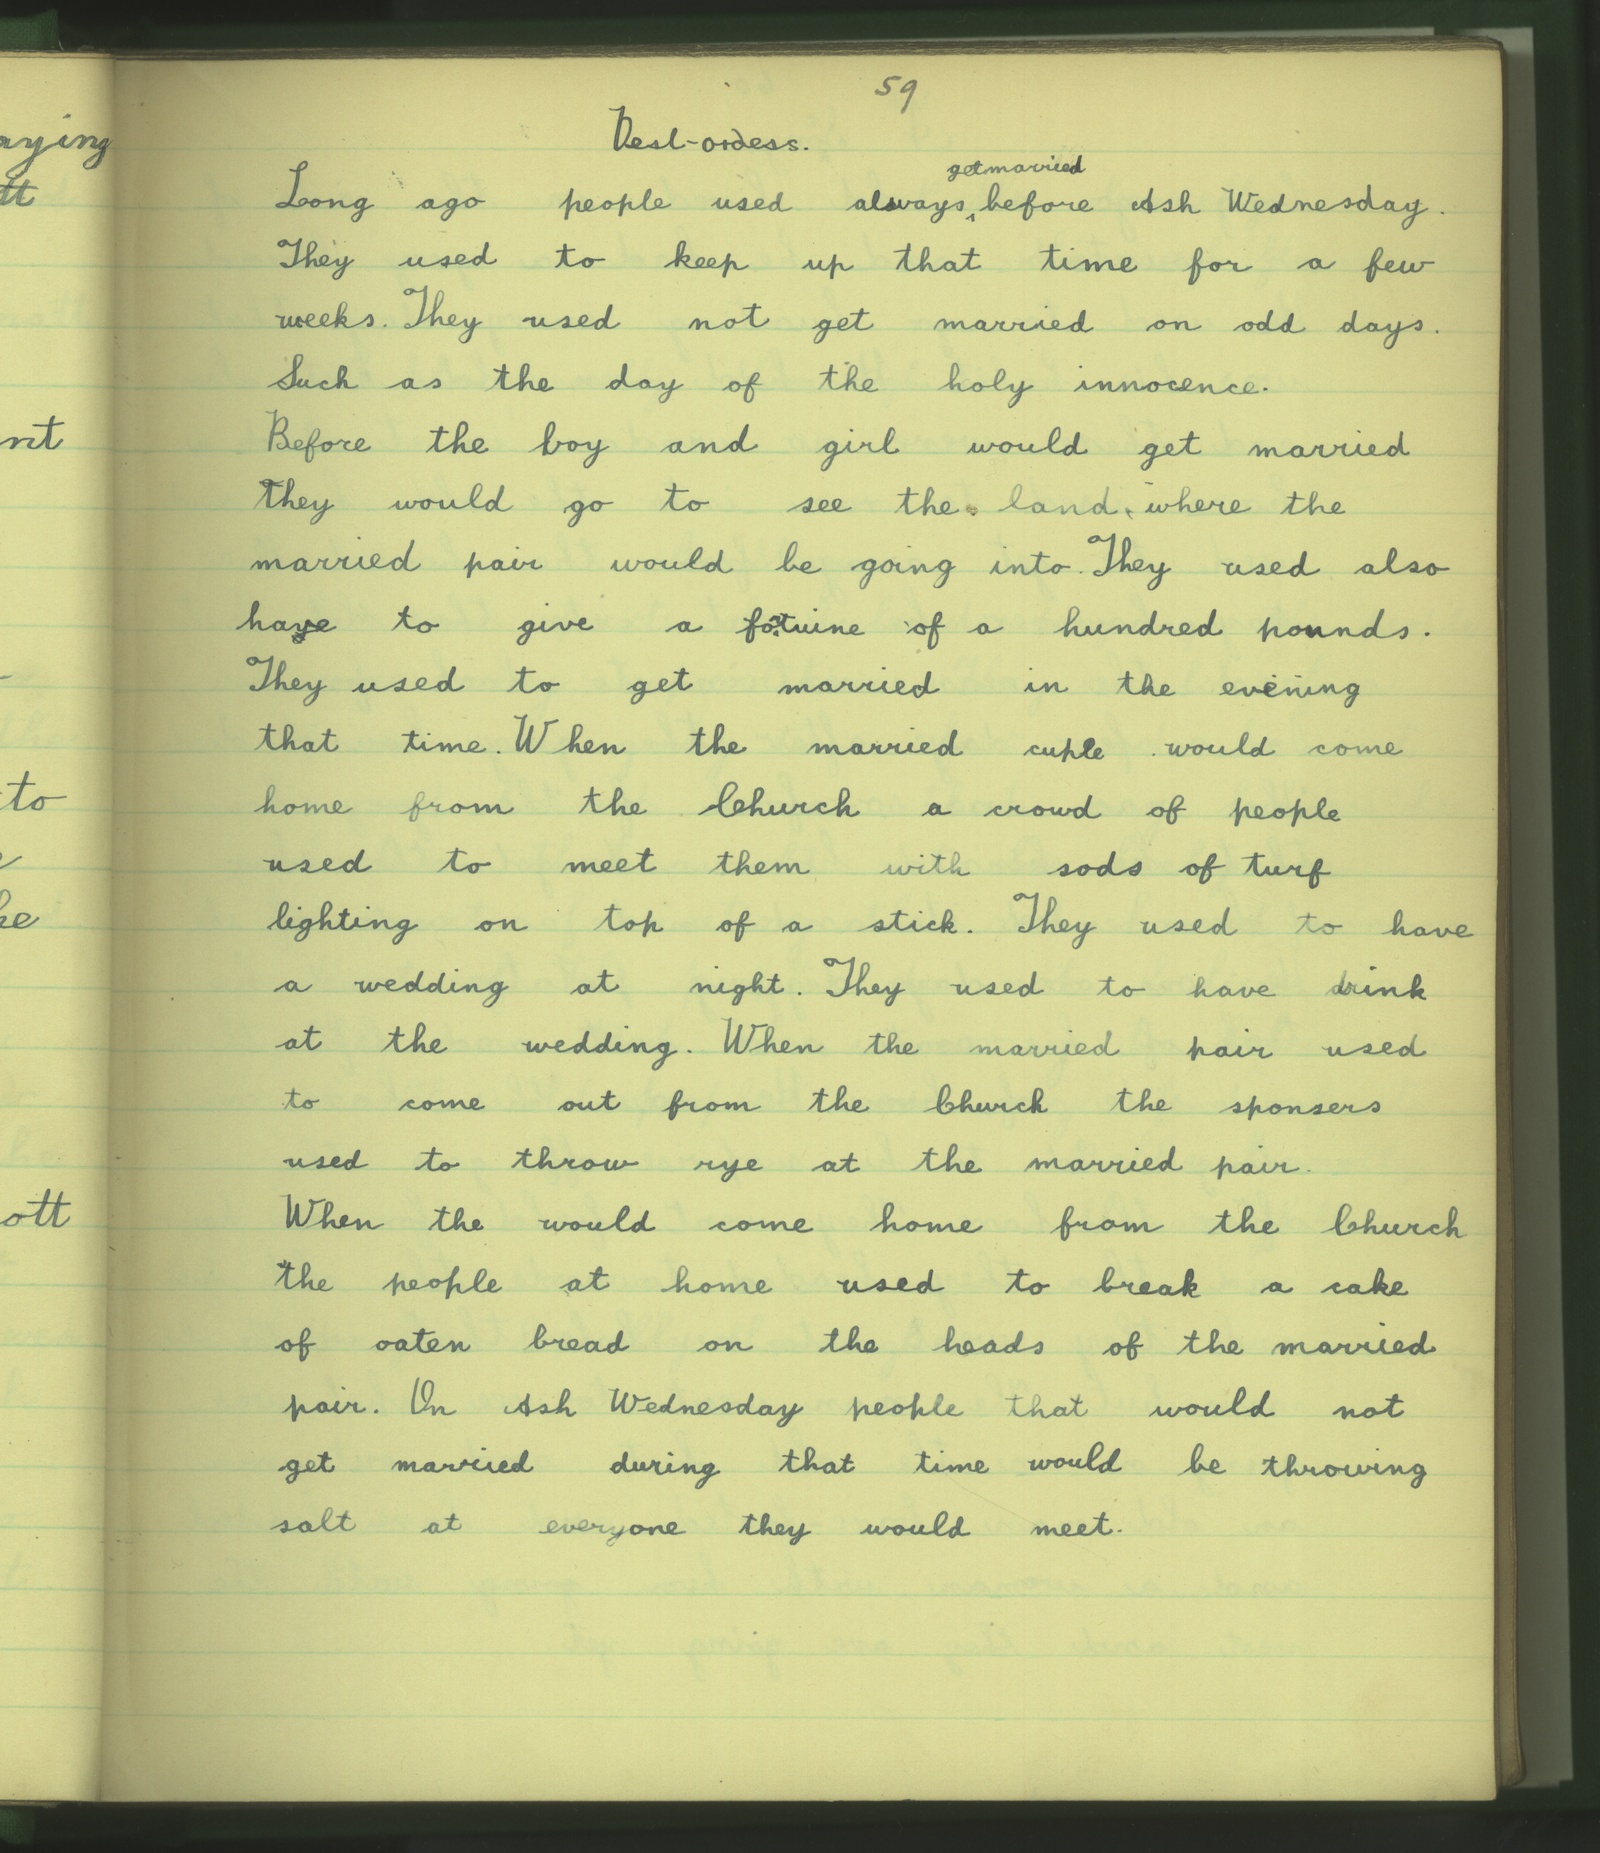 59
Beal-oideas.
Long ago people used always get married before Ash Wednesday.
They used to keep up that time for a few
weeks. They used not get married on odd days.
Such as the day of the holy innocence.
Before the boy and girl would get married
they would go to see the land, where the
married pair would be going into. They used also
have to give a fortuine of a hundred pounds.
They used to get married in the evening
that time. When the married cuple would come
home from the Church a crowd of people
used to meet them with sods of turf
lighting on top of a stick. They used to have
a wedding at night. They used to have drink
at the wedding. When the married pair used
to come out from the Church the sponsers
used to throw rye at the married pair.
When the would come home from the Church
the people at home used to break a cake
of oaten bread on the heads of the married
pair. On Ash Wednesday people that would not
get married during that time would be throwing
salt at everyone they would meet.